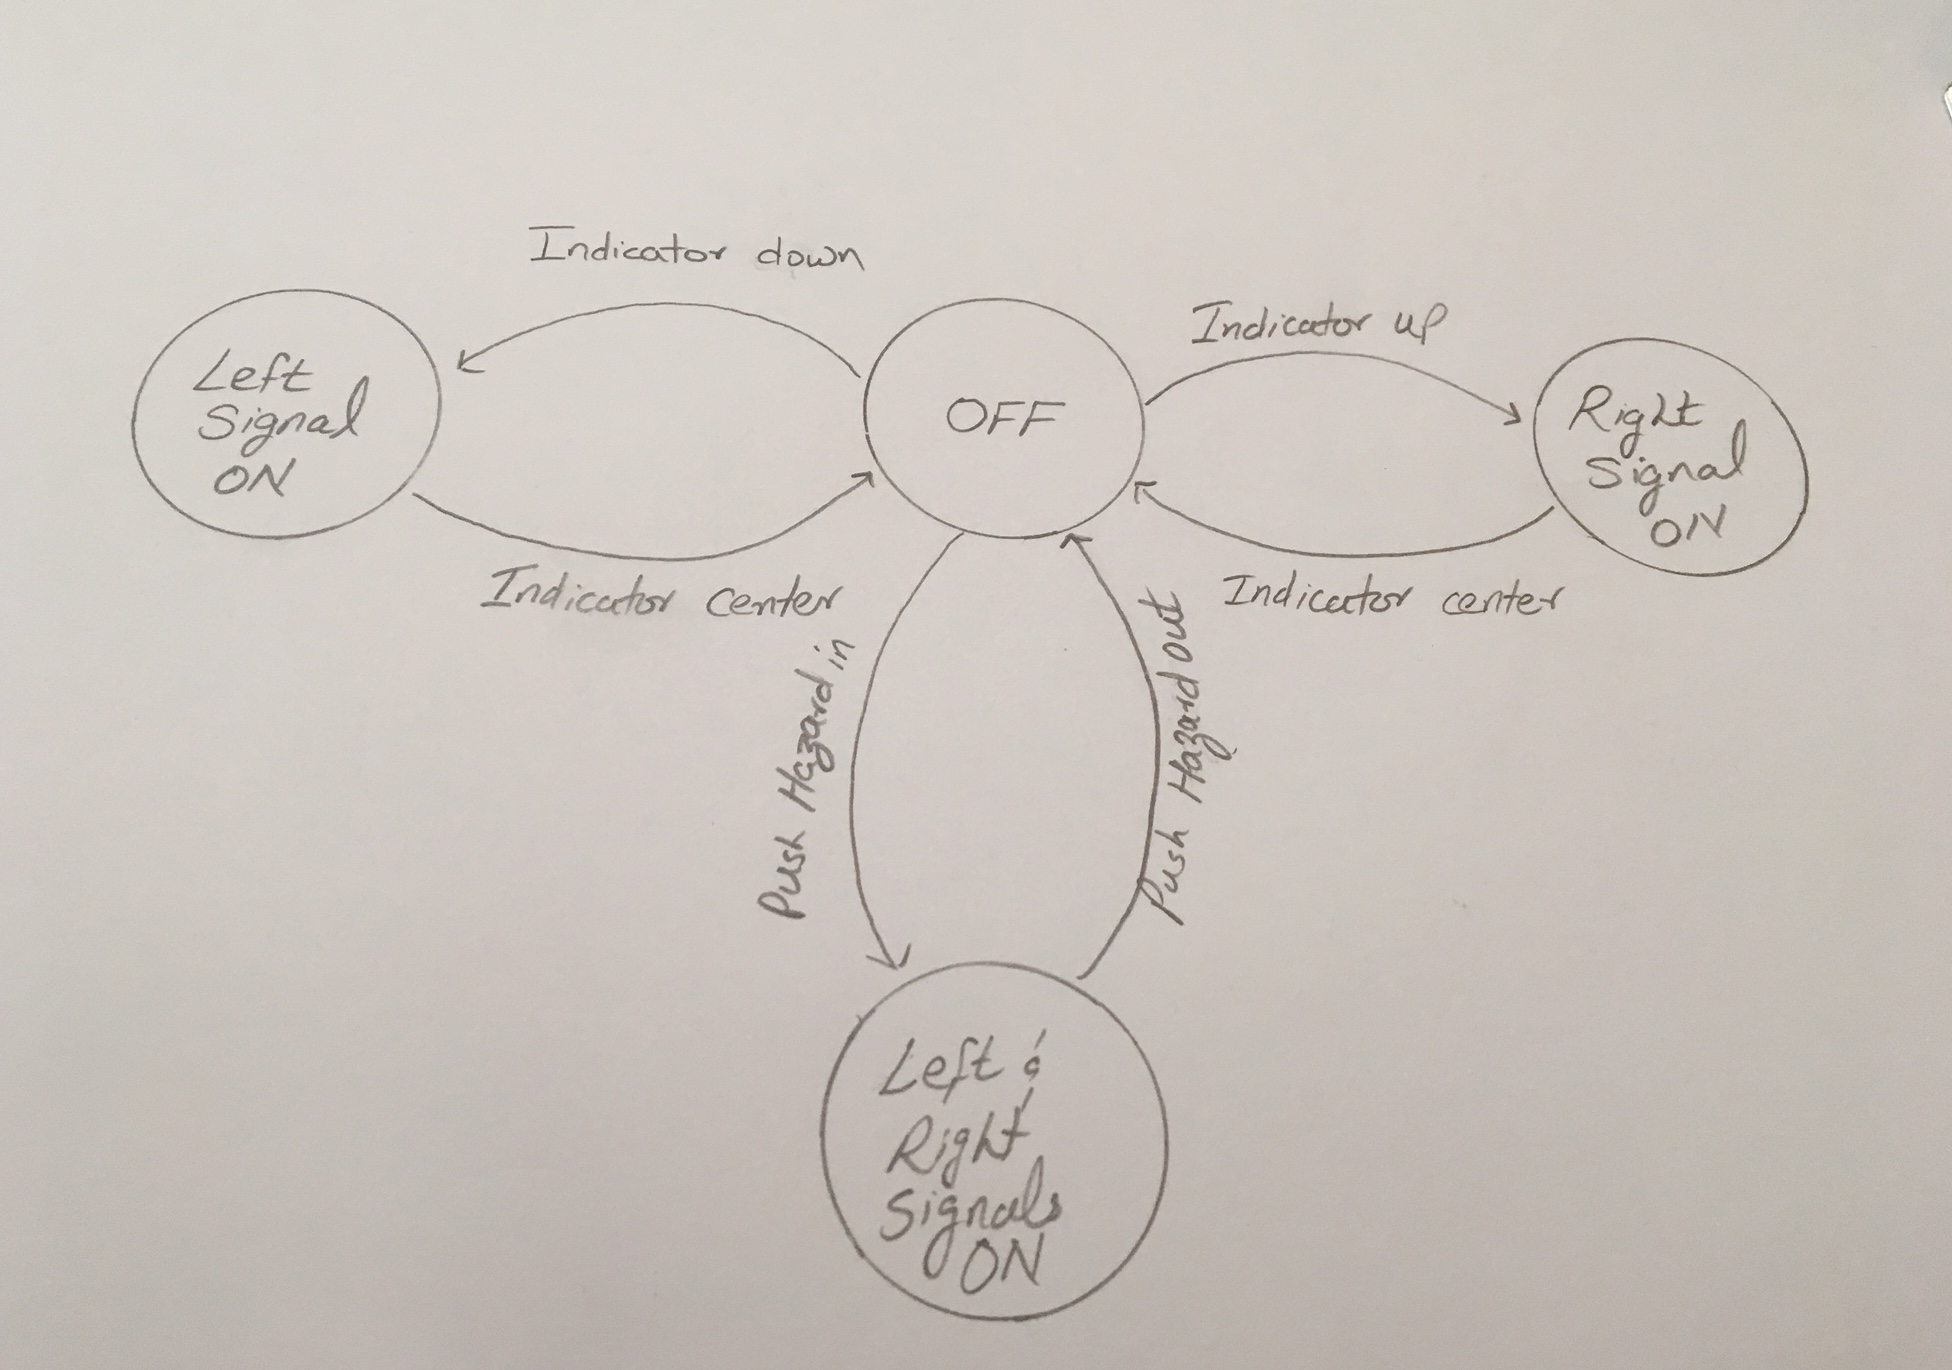 Indicator down
Indicator up
Left
Signal
ON
OFF
Right
Signal
ON
Indicator center
Indicator center
Push Hazard in
Push Hazard out
Left &
Right
Signals
ON